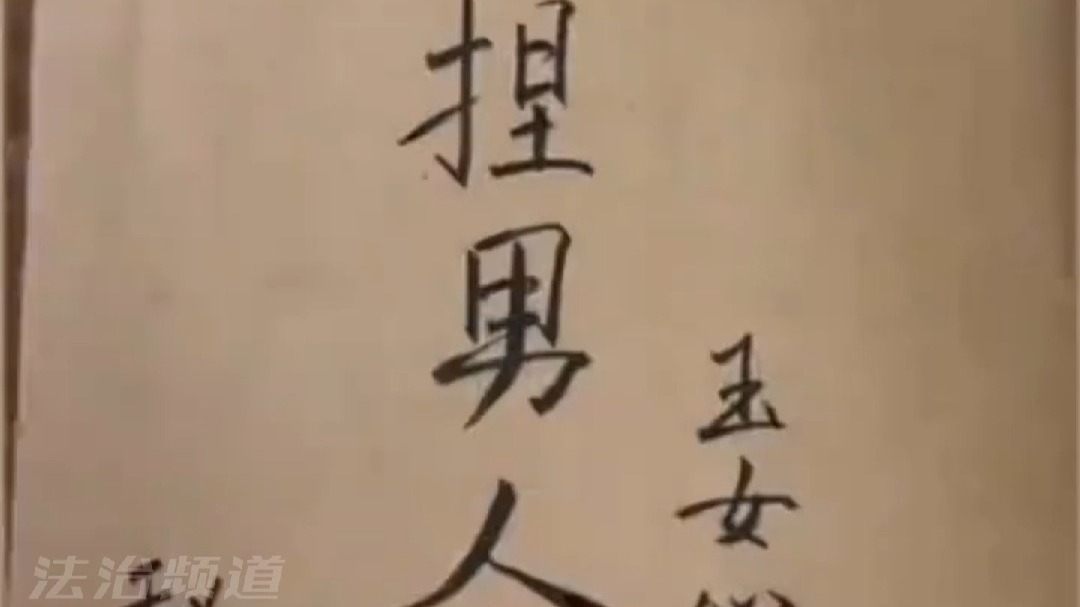 玉女
捏男人
法治频道